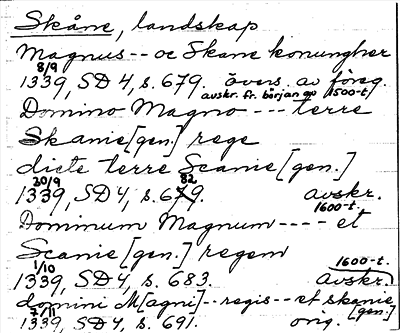 Skåne, landskap
Magnus -- oc Skane konungher
8/9
1339, SD 4, s. 679. övers. av föreg.
avskr. fr. början av 1500-t.
Domino Magno --- terre
Skanie [gen.] rege
dicte terre Scanie [gen.]
20/9 82
1339, SD 4, s. 679. avskr.
1600-t.
Dominum Magnum ---- et
Scanie [gen.] regem
1/10 1600-t.
1339, SD 4, s. 683. Avskr.
domini M[agni] -- regis -- et skanie
7/11 [gen.]
1339, SD 4, s. 691. orig.